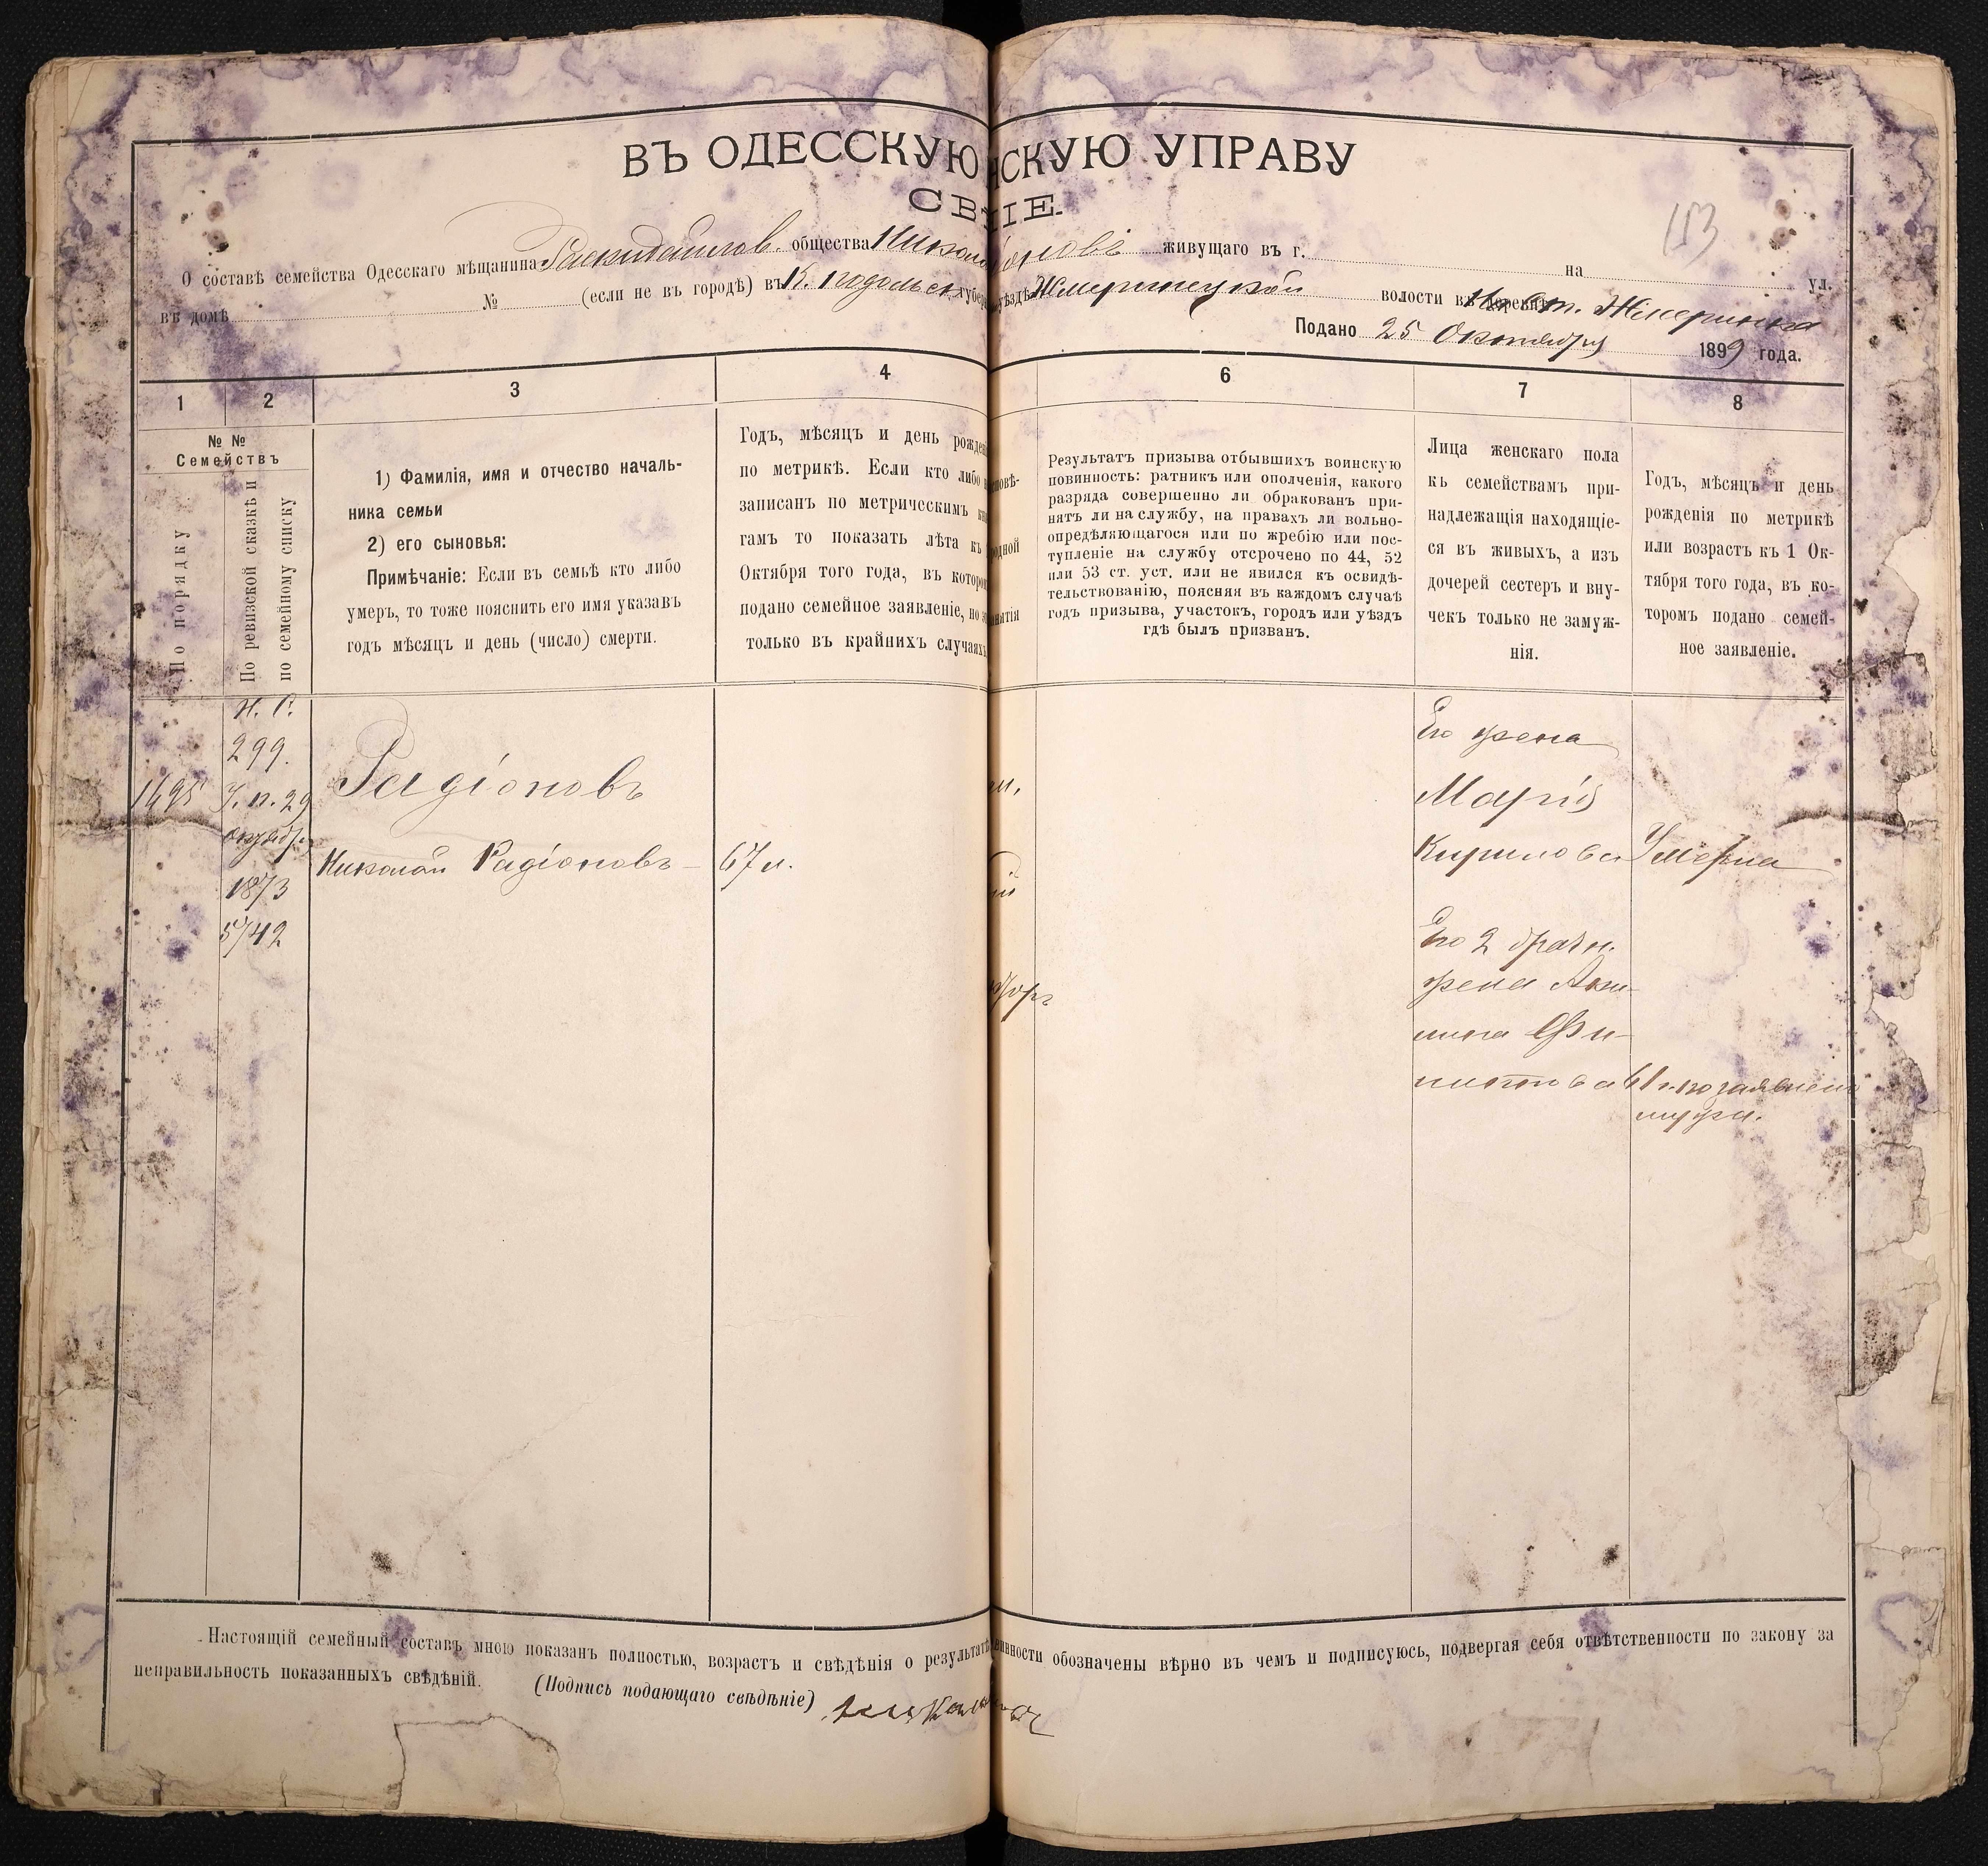 ВЪ ОДЕССКУЮ НСКУЮ УПРАВУ
СВ НІЕ.
153
О составѣ семейства Одесскаго мѣщанина общества живущаго въ г. на ул.
въ домѣ № (если не въ городѣ) въ К. Подольск губер уѣздѣ Жмеринецкой волости въ деревнѣ ст. Жмеринка
Подано 25 Октября 1899 года.
1 2 3 4 6 7 8
№ №
Семействъ
По порядку
По ревизской сказкѣ и
по семейному списку
1) Фамилія, имя и отчество началь-
ника семьи
2) его сыновья:
Примѣчаніе: Если въ семьѣ кто либо
умеръ, то тоже пояснить его имя указавъ
годъ мѣсяцъ и день (число) смерти.
Годъ, мѣсяцъ и день рожден
по метрикѣ. Если кто либо н
записанъ по метрическимъ кн
гамъ то показать лѣта къ
Октября того года, въ которо
подано семейное заявленіе, но э
только въ крайнихъ случаяхъ
повѣ-
одной
анятія
Результатъ призыва отбывшихъ воинскую
повинность: ратникъ или ополченія, какого
разряда совершенно ли обракованъ при-
нятъ ли на службу, на правахъ ли вольно-
опредѣляющагося или по жребію или пос-
тупленіе на службу отсрочено по 44, 52
или 53 ст. уст. или не явился къ освидѣ-
тельствованію, поясняя въ каждомъ случаѣ
годъ призыва, участокъ, городъ или уѣздъ
гдѣ былъ призванъ.
Лица женскаго пола
къ семействамъ при-
надлежащія находящіе-
ся въ живыхъ, а изъ
дочерей сестеръ и вну-
чекъ только не замуж-
нія.
Годъ, мѣсяцъ и день
рожденія по метрикѣ
или возрастъ къ 1 Ок-
тября того года, въ ко-
торомъ подано семей-
ное заявленіе.
1495
Н. С.
299.
29
октября
1873
5742
Радіоновъ
Николай Радіоновъ 67 л.
Его жена
Марія
Кирилова Умерла
Его 2 брачн.
жена Аки-
лина Фи-
липова 61 л. по заявлен
мужа.
Настоящій семейный составъ мною показанъ полностью, возрастъ и свѣдѣнія о результатѣ инности обозначены вѣрно въ чемъ и подписуюсь, подвергая себя отвѣтственности по закону за
неправильность показанныхъ свѣдѣній. (Подпись подающаго свѣдѣніе)